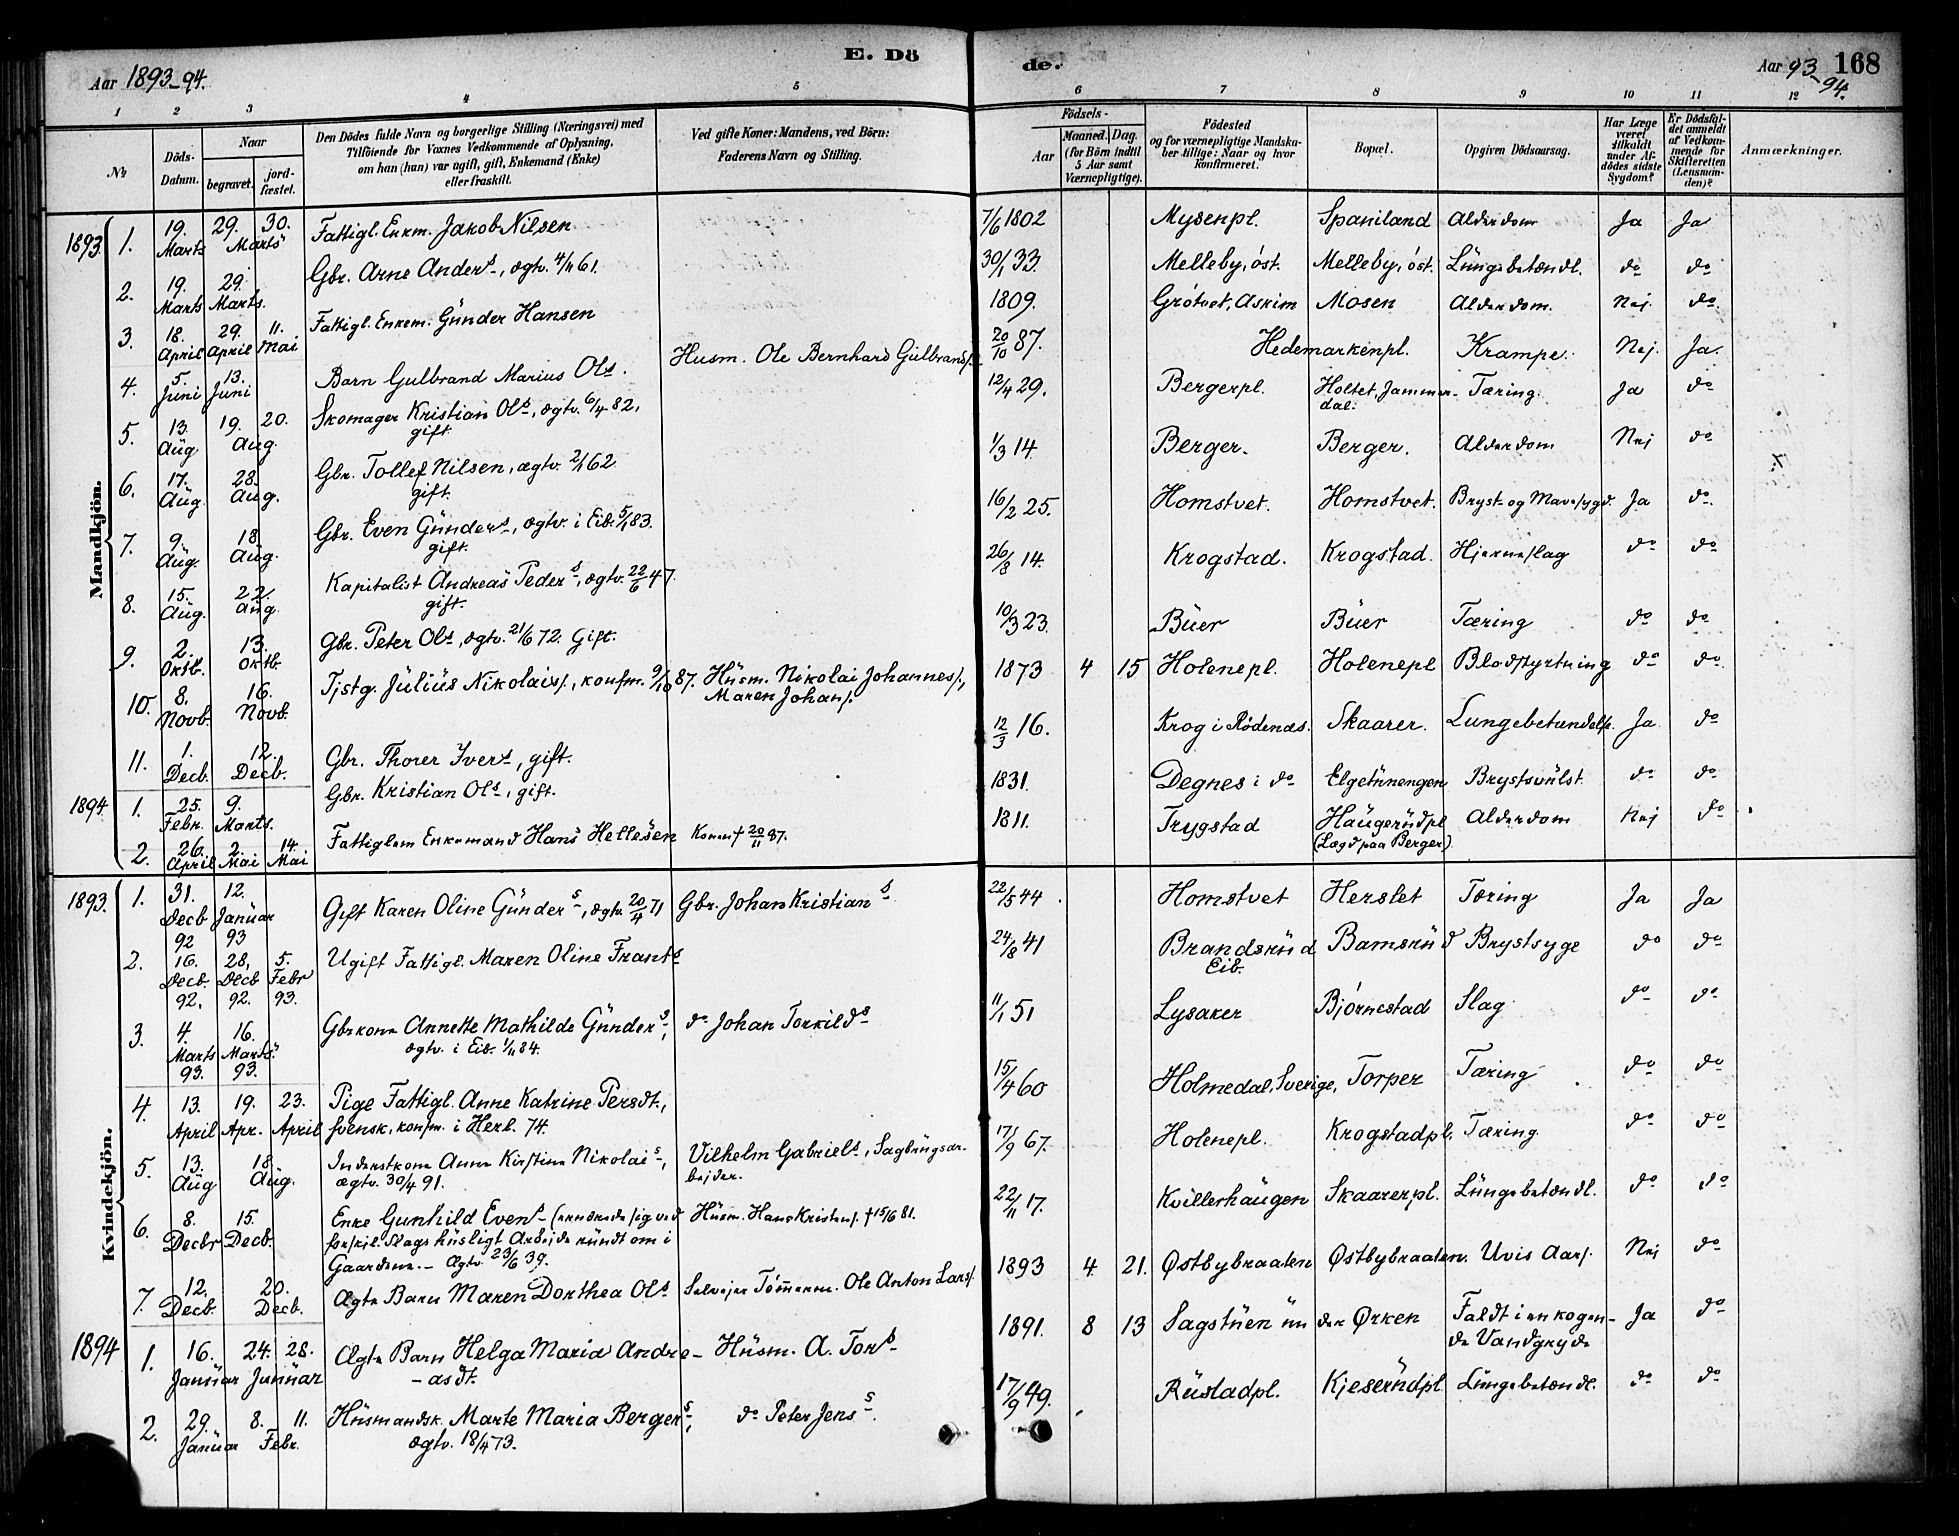 E. Dö
de.
168
Aar 1893-94.
Aar 93-94.
1 2 3 4 5 6 7 8 9 10 11 12
No
Döds-Datum.
Naar
begravet.
jord-fæstet.
Den Dödes fulde Navn og borgerlige Stilling (Næringsvei) med
Tilföiende for Voxnes Vedkommende af Oplysning,
om han (hun) var ugift, gift, Enkemand (Enke)
eller fraskilt.
Ved gifte Koner: Mandens, ved Börn:
Faderens Navn og Stilling.
Födsels-
Aar
Maaned. Dag.
(for Börn indtil
5 Aar samt
Værnepligtige).
Födested
og for værnepligtige Mandska-
ber tillige: Naar og hvor
konfirmeret.
Bopæl.
Opgiven Dödsaarsag.
Har Læge
været
tilkaldt
under Af-
dödes sidste
Sygdom?
Er Dödsfal-
det anmeldt
af Vedkom-
mende for
Skifteretten
(Lensman-
den)?
Anmærkninger.
Mandkjön.
1893 1. 19. Marts 29. 30. Marts Fattigl. Enkm. Jakob Nilsen 7/6 1802 Mysenpl. Spaniland Alderdom Ja Ja
2. 19. Marts 29. Marts. Gbr. Arne Anders, ægtv. 4/4 61. 30/1 33. Melleby, öst. Melleby, öst. Lungebetændl. do do
3. 18. April 29. April 11. Mai Fattigl. Enkem. Gunder Hansen 1809. Grötvet, Askim Mosen Alderdom. Nej. do
4. 5. Juni 13. Juni Barn Gulbrand Marius Ols. Husm. Ole Bernhard Gulbrands. 20/10 87. Hedemarkenpl. Krampe. Nej. Ja.
5. 13. Aug 19. 20. Aug Skomager Kristian Ols, ægtv. 6/4 82,
gift. 12/4 29. Bergerpl. Holtet, Jammer-
dal. Tæring. Ja do
6. 17. Aug. 28. Aug. Gbr. Tollef Nilsen, ægtv. 2/1 62.
gift. 1/3 14 Berger. Berger. Alderdom Nej do
7. 9. Aug. 18 Aug. Gbr. Even Gunders, ægtv. i Eib. 5/1 83.
gift. 16/2 25. Homstvet. Homstvet. Bryst- og Mavesygd. Ja do
8. 15. Aug. 22. Aug. Kapitalist Andreas Peders, ægtv. 22/6 47.
gift. 26/8 14. Krogstad. Krogstad. Hjerneslag do do
9. 2. Oktb. 13. Oktb. Gbr. Peter Ols, ægtv. 21/6 72. Gift. 10/3 23. Buer Buer Tæring do do
10. 8. Novb. 16. Novb. Tjstg. Julius Nikolais., konfm. 9/10 87. Husm. Nikolai Johannes.,
Maren Johans. 1873 4 15 Holenepl. Holenepl Blodstyrtning do do
11. 1. Decb. 12. Decb. Gbr. Thorer Ivers, gift. 12/3 16. Krog i Rødenæs. Skaarer. Lungebetændels. Ja do
1894. 1. 25. Febr. 9. Marts. Gbr. Kristian Ols, gift. 1831. Degnes i do Elgetunengen Brystsvulst. do do
2. 26. April 2. Mai 14. Mai Fattiglem Enkemand Hans Hellesen Konen † 20/11 87. 1811. Trygstad Haugerudpl
(Lægd paa Berger) Alderdom Nej do
Kvindekjön.
1893. 1. 31. Decb 92 12. Januar 93 Gift Karen Oline Gunders, ægtv. 20/4 71 Gbr. Johan Kristians. 22/5 44. Homstvet Herslet Tæring Ja Ja
2. 16. Decb. 92. 28. Decb 92. 5. Febr 93. Ugift Fattigl. Maren Oline Frants 24/8 41 Brandsrud
Eib. Bamsrud Brystsyge do do
3. 4. Marts 93. 16. Marts. 93. Gbrkone Annette Mathilde Gunders,
ægtv. i Eib. 1/11 84. do Johan Torkilds 11/1 51 Lysaker Bjørnestad Slag do do
4. 13. April 19. Apr. 23. April Pige Fattigl. Anne Katrine Persdt.,
svensk, konfm. i Herl. 74. 15/4 60 Holmedal, Sverige, Torper Tæring do do
5. 13. Aug 18 Aug. Inderstkone Anne Kirstine Nikolais,
ægtv. 30/4 91. Vilhelm Gabriels, Sagbrugsar-
bejder. 17/9 67. Holenepl. Krogstadpl. Tæring do do
6. 8. Decbr 15. Decb. Enke Gunhild Evens (ernærede sig ved
forskjl. Slags husligt Arbejde rundt om i
Gaardene. - Ægtv. 23/6 39. Husm. Hans Kristens. † 15/6 81. 22/11 17. Kvillerhaugen Skaarerpl. Lungebetændl. do do
7. 12. Decb. 20. Decb. Ægte Barn Maren Dorthea Ols Selvejer Tømmerm. Ole Anton Lars. 1893 4 21. Østbybraaten Østbybraaten. Uvis Aars. Nej do
1894 1. 16. Januar 24. 28. Januar Ægte Barn Helga Maria Andre-
-asdt. Husm. A. Tors 1891. 8 13 Sagstuen under Ørken Faldt i en kogen-
de Vandgryde Ja do
2. 29. Januar 8. 11. Febr. Husmandsk. Marte Maria Bergers,
ægtv. 18/4 73. do Peter Jens. 17/9 49. Rustadpl. Kjeserudpl Lungebetændl. do do